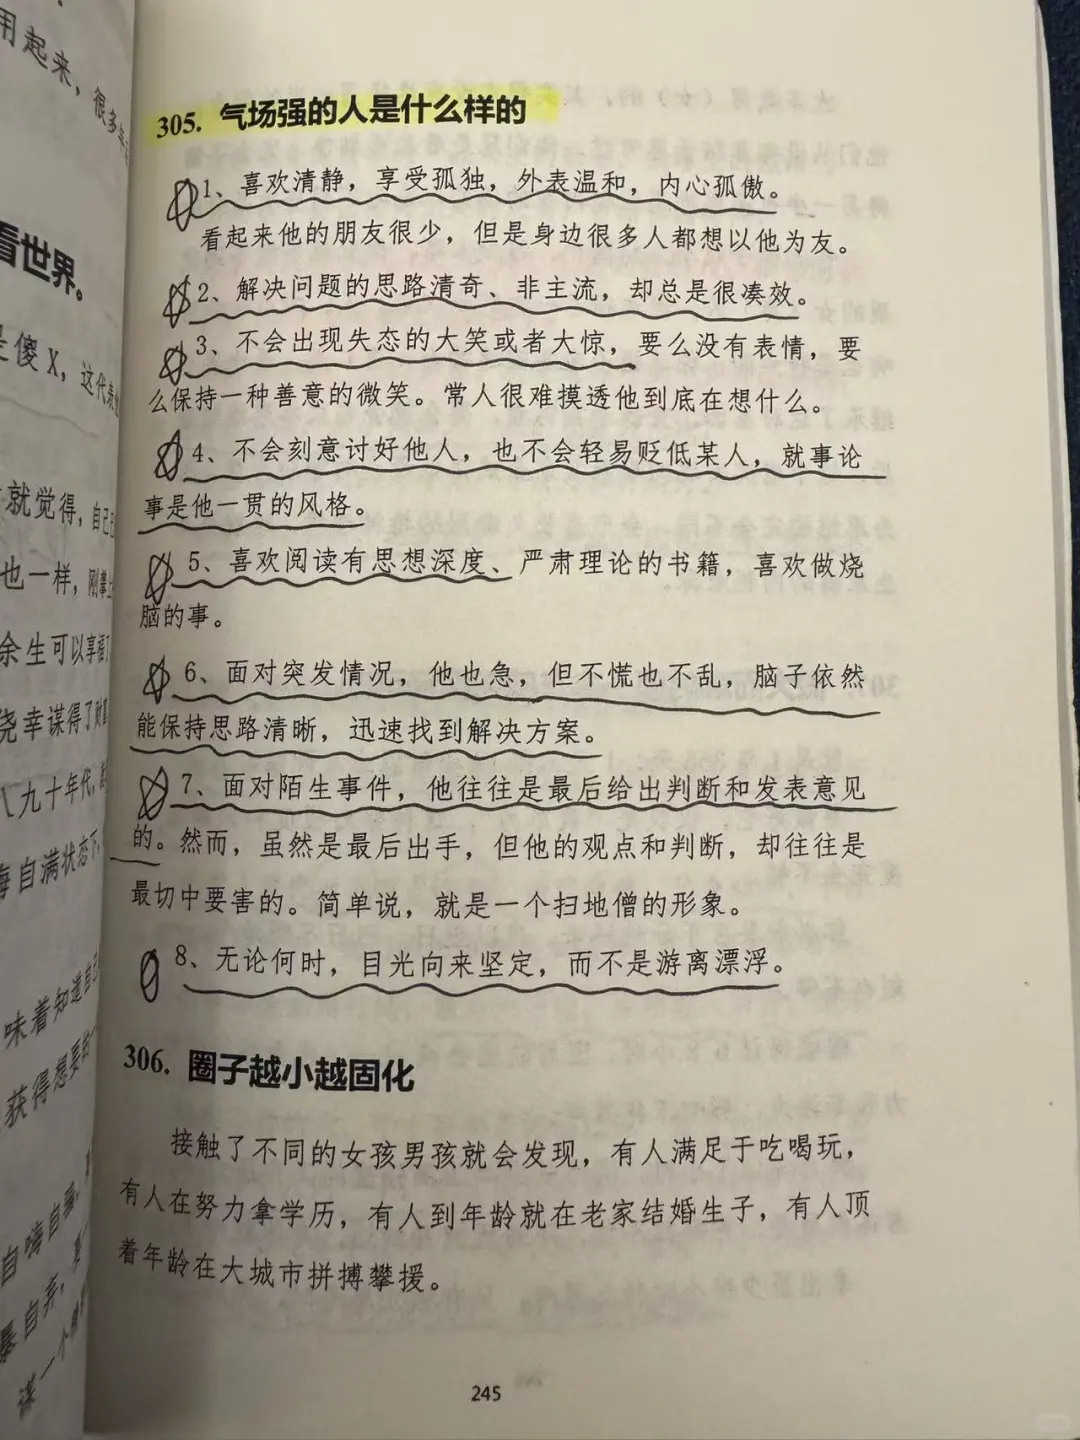 用起来，很多年
看世界。
是傻 X，这代表
就觉得，自己
也一样，刚攀
余生可以享福了
侥幸谋得了财富
八九十年代，
每自满状态下，
味着知道自己
获得想要的
自嗨自
暴自弃，
谋一个
305. 气场强的人是什么样的
1、喜欢清静，享受孤独，外表温和，内心孤傲。
看起来他的朋友很少，但是身边很多人都想以他为友。
2、解决问题的思路清奇、非主流，却总是很凑效。
3、不会出现失态的大笑或者大惊，要么没有表情，要
么保持一种善意的微笑。常人很难摸透他到底在想什么。
4、不会刻意讨好他人，也不会轻易贬低某人，就事论
事是他一贯的风格。
5、喜欢阅读有思想深度、严肃理论的书籍，喜欢做烧
脑的事。
6、面对突发情况，他也急，但不慌也不乱，脑子依然
能保持思路清晰，迅速找到解决方案。
7、面对陌生事件，他往往是最后给出判断和发表意见
的。然而，虽然是最后出手，但他的观点和判断，却往往是
最切中要害的。简单说，就是一个扫地僧的形象。
8、无论何时，目光向来坚定，而不是游离漂浮。
306. 圈子越小越固化
接触了不同的女孩男孩就会发现，有人满足于吃喝玩，
有人在努力拿学历，有人到年龄就在老家结婚生子，有人顶
着年龄在大城市拼搏攀援。
245